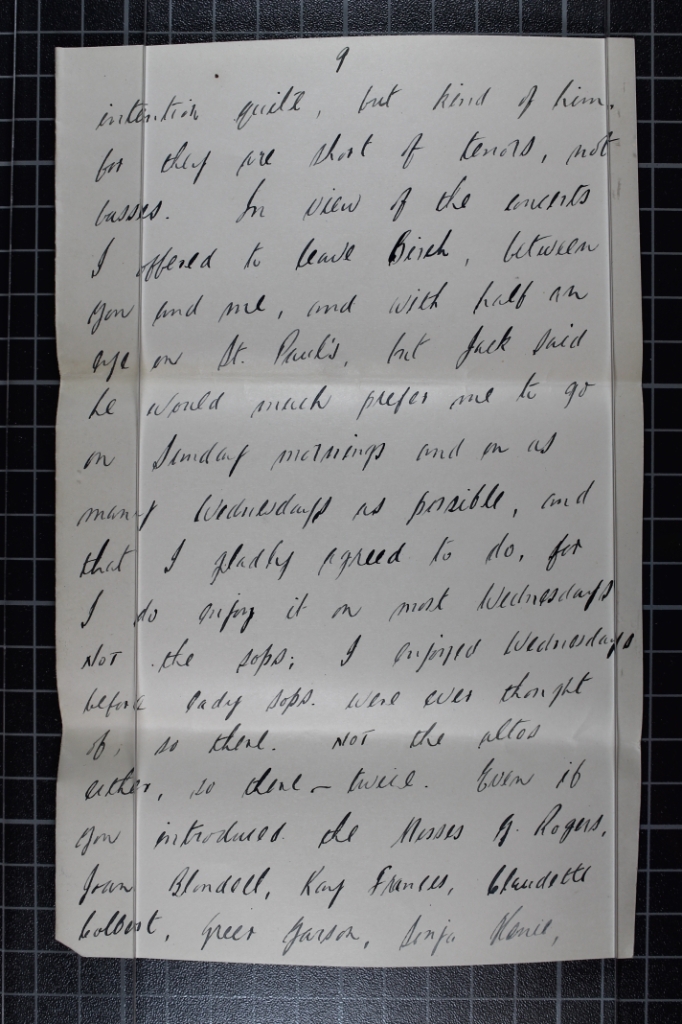 9
intention quite, but kind of him,
for they are short of tenors, not
basses. In view of the concerts
I offered to leave Birch, between
you and me, and with half an
eye on St. Paul's, but Jack said
he would much prefer me to go
on Sunday mornings and on as
many Wednesdays as possible, and
that I gladly agreed to do, for
I do enjoy it on most Wednesdays
NOT the sops; I enjoyed Wednesdays
before lady sops. were ever thought
of, so there. NOT the altos
either, so there – twice. Even if
you introduced the Misses G. Rogers,
Joan Blondell, Kay Frances, Claudette
Colbert, Greer Garson, Sonja Henie,